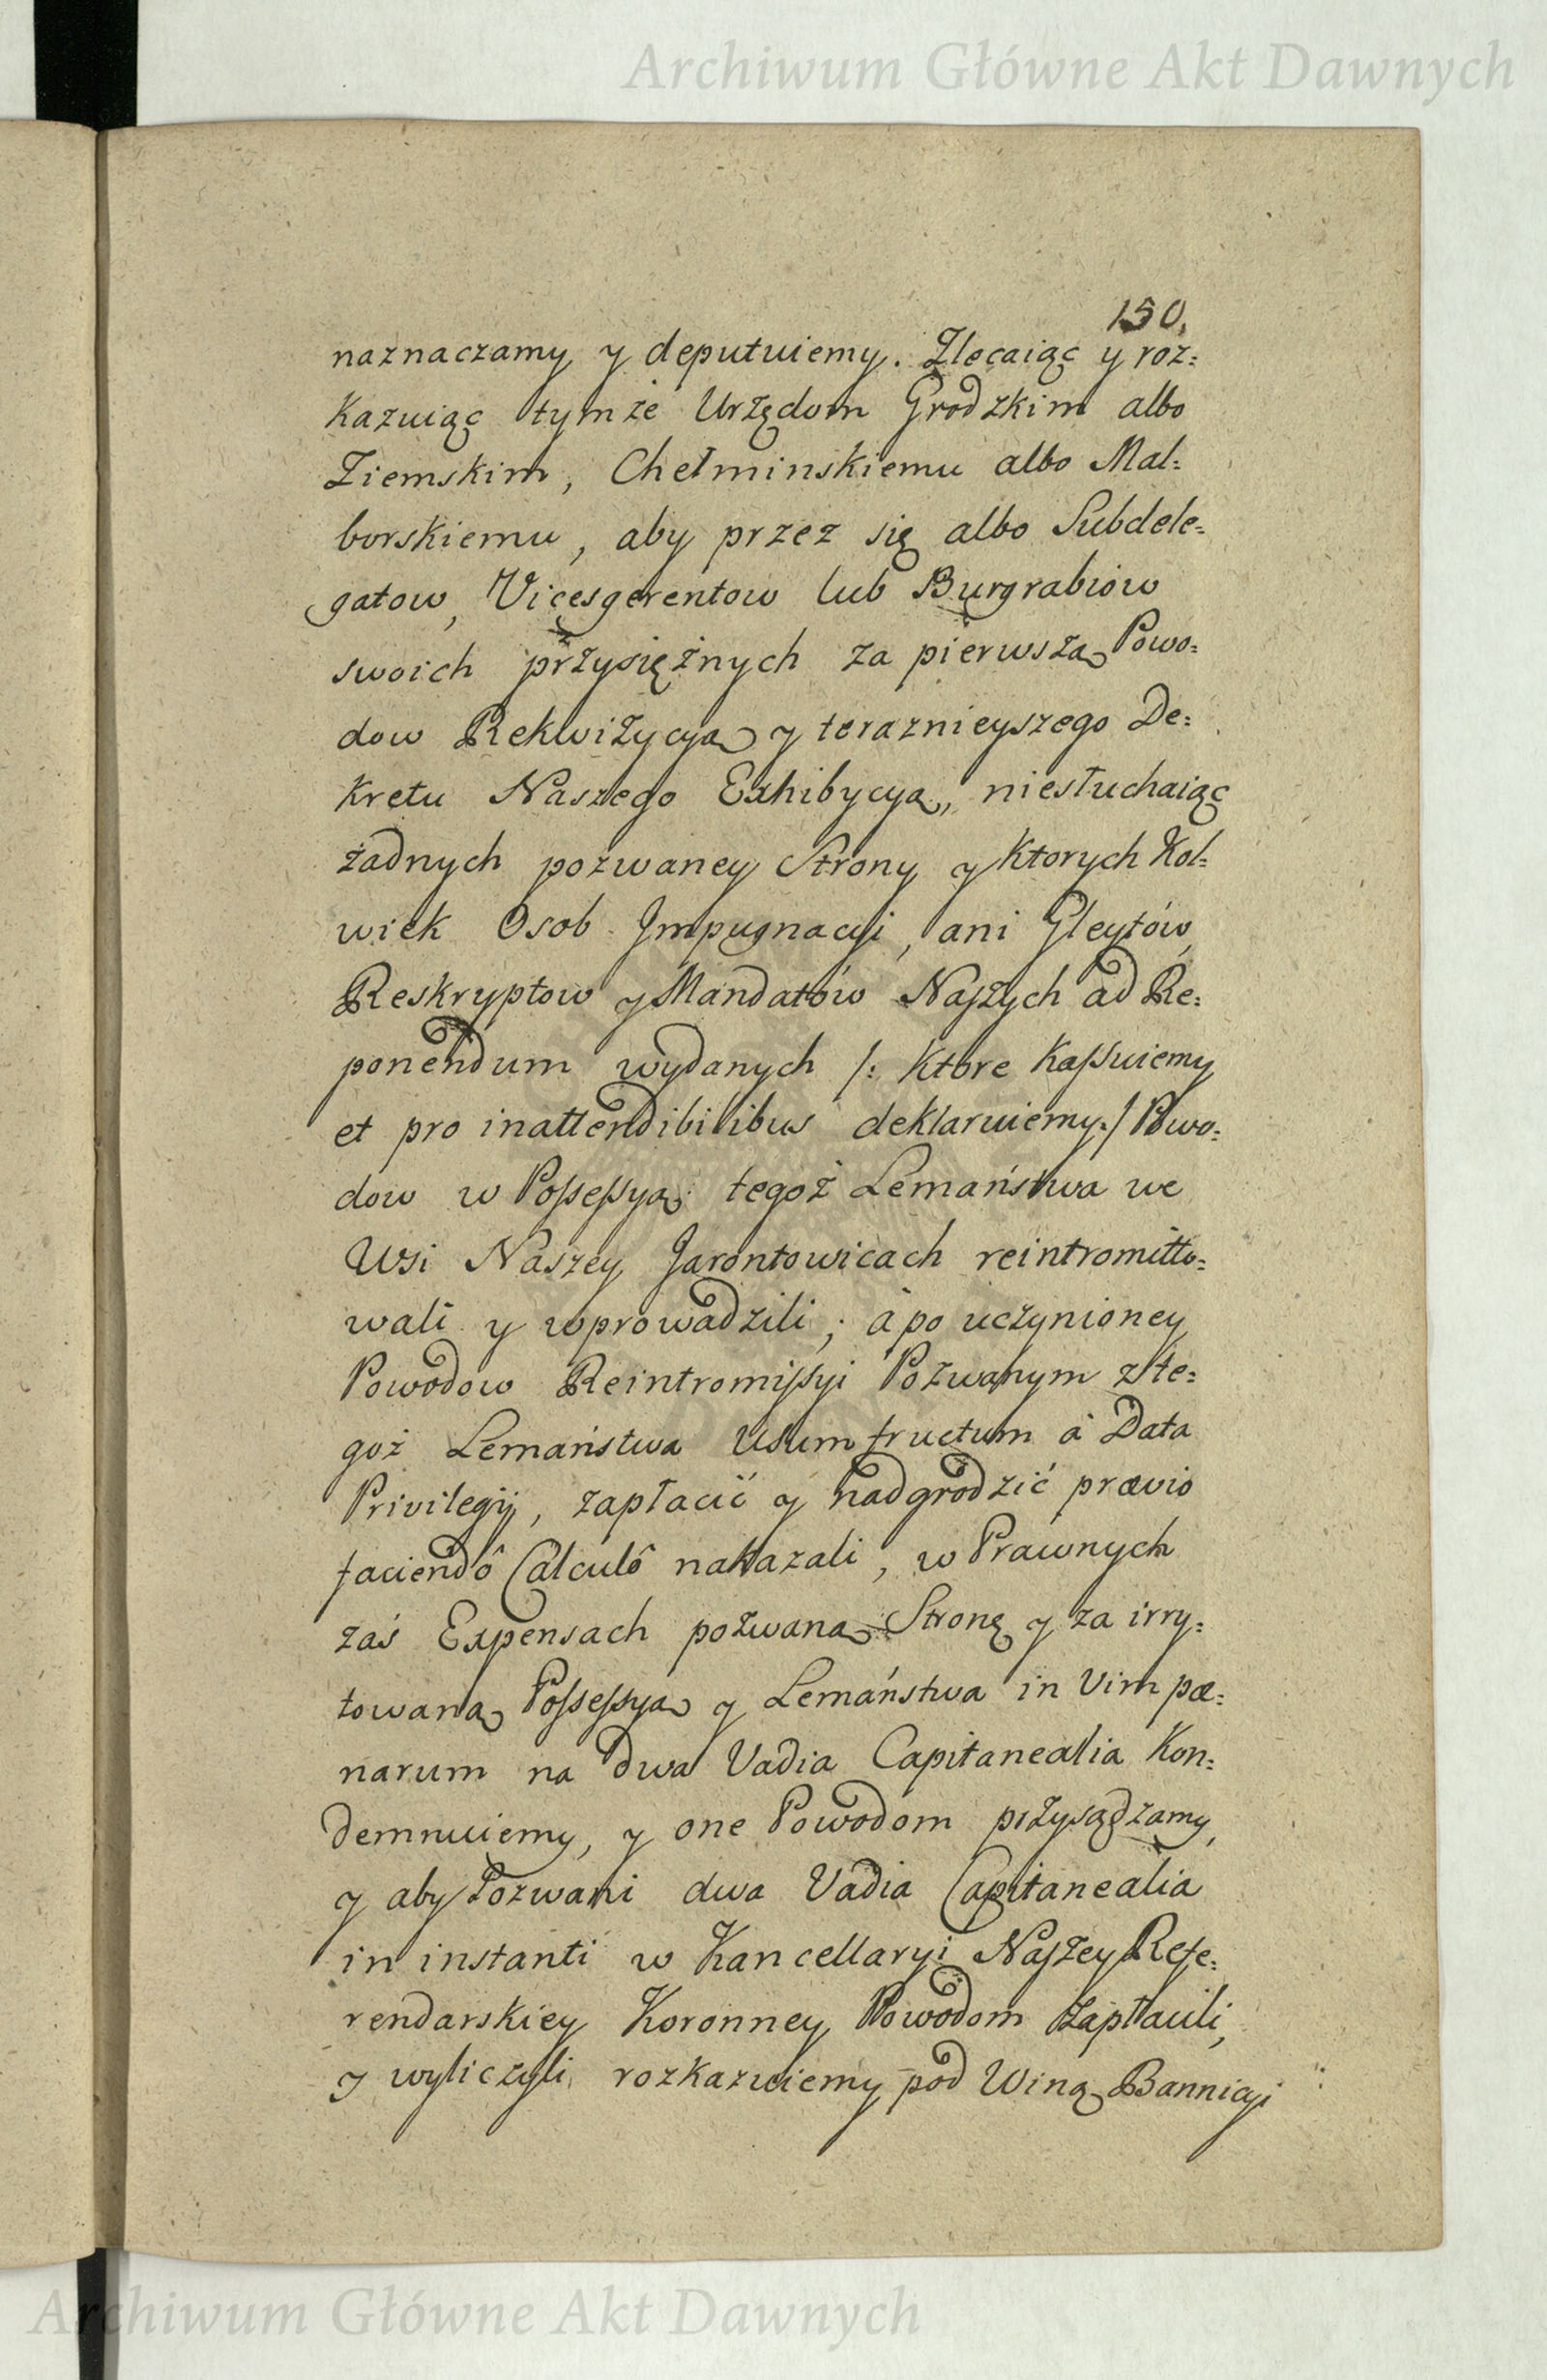 Archiwum Główne Akt Dawnych
150.
naznaczamy y deputuiemy. Zlecaiąc y roz=
kazuiąc tymże Urzędom Grodzkim albo
Ziemskim, Chełminskiemu albo Mal=
borskiemu, aby przez się albo Subdele=
gatow, Vicesgerentow lub Burgrabiow
swoich przysiężnych za pierwszą Powo=
dow Rekwizycyą y teraznieyszego De=
kretu Naszego Exhibycyą, niesłuchaiąc
żadnych pozwaney Strony y ktorych kol=
wiek Osob Impugnacyi, ani Gleytów,
Reskryptow y Mandatów Naszych ad Re=
ponendum wydanych /: ktore kassuiemy
et pro inattendibilibus deklaruiemy :/ Powo=
dow w Possessyą tegoż Lemaństwa we
Wsi Naszey Jarontowicach reintromitto=
wali y wprowadzili; à po uczynioney
Powodow Reintromissyi Pozwanym z te=
goż Lemaństwa Usumfructum à Data
Privilegij, zapłacić y nadgrodzić prævio
faciendô Calculô nakazali, w Prawnych
zaś Expensach pozwaną Stronę y za irry=
towaną Possessyą y Lemaństwa in Vim pæ=
narum na dwa Vadia Capitanealia kon=
demnuiemy, y one Powodom przysądzamy,
y aby Pozwani dwa Vadia Capitanealia
in instanti w Kancellaryi Naszey Refe=
rendarskiey Koronney Powodom zapłacili,
y wyliczyli rozkazuiemy pod Winą Bannicyi
Archiwum Główne Akt Dawnych